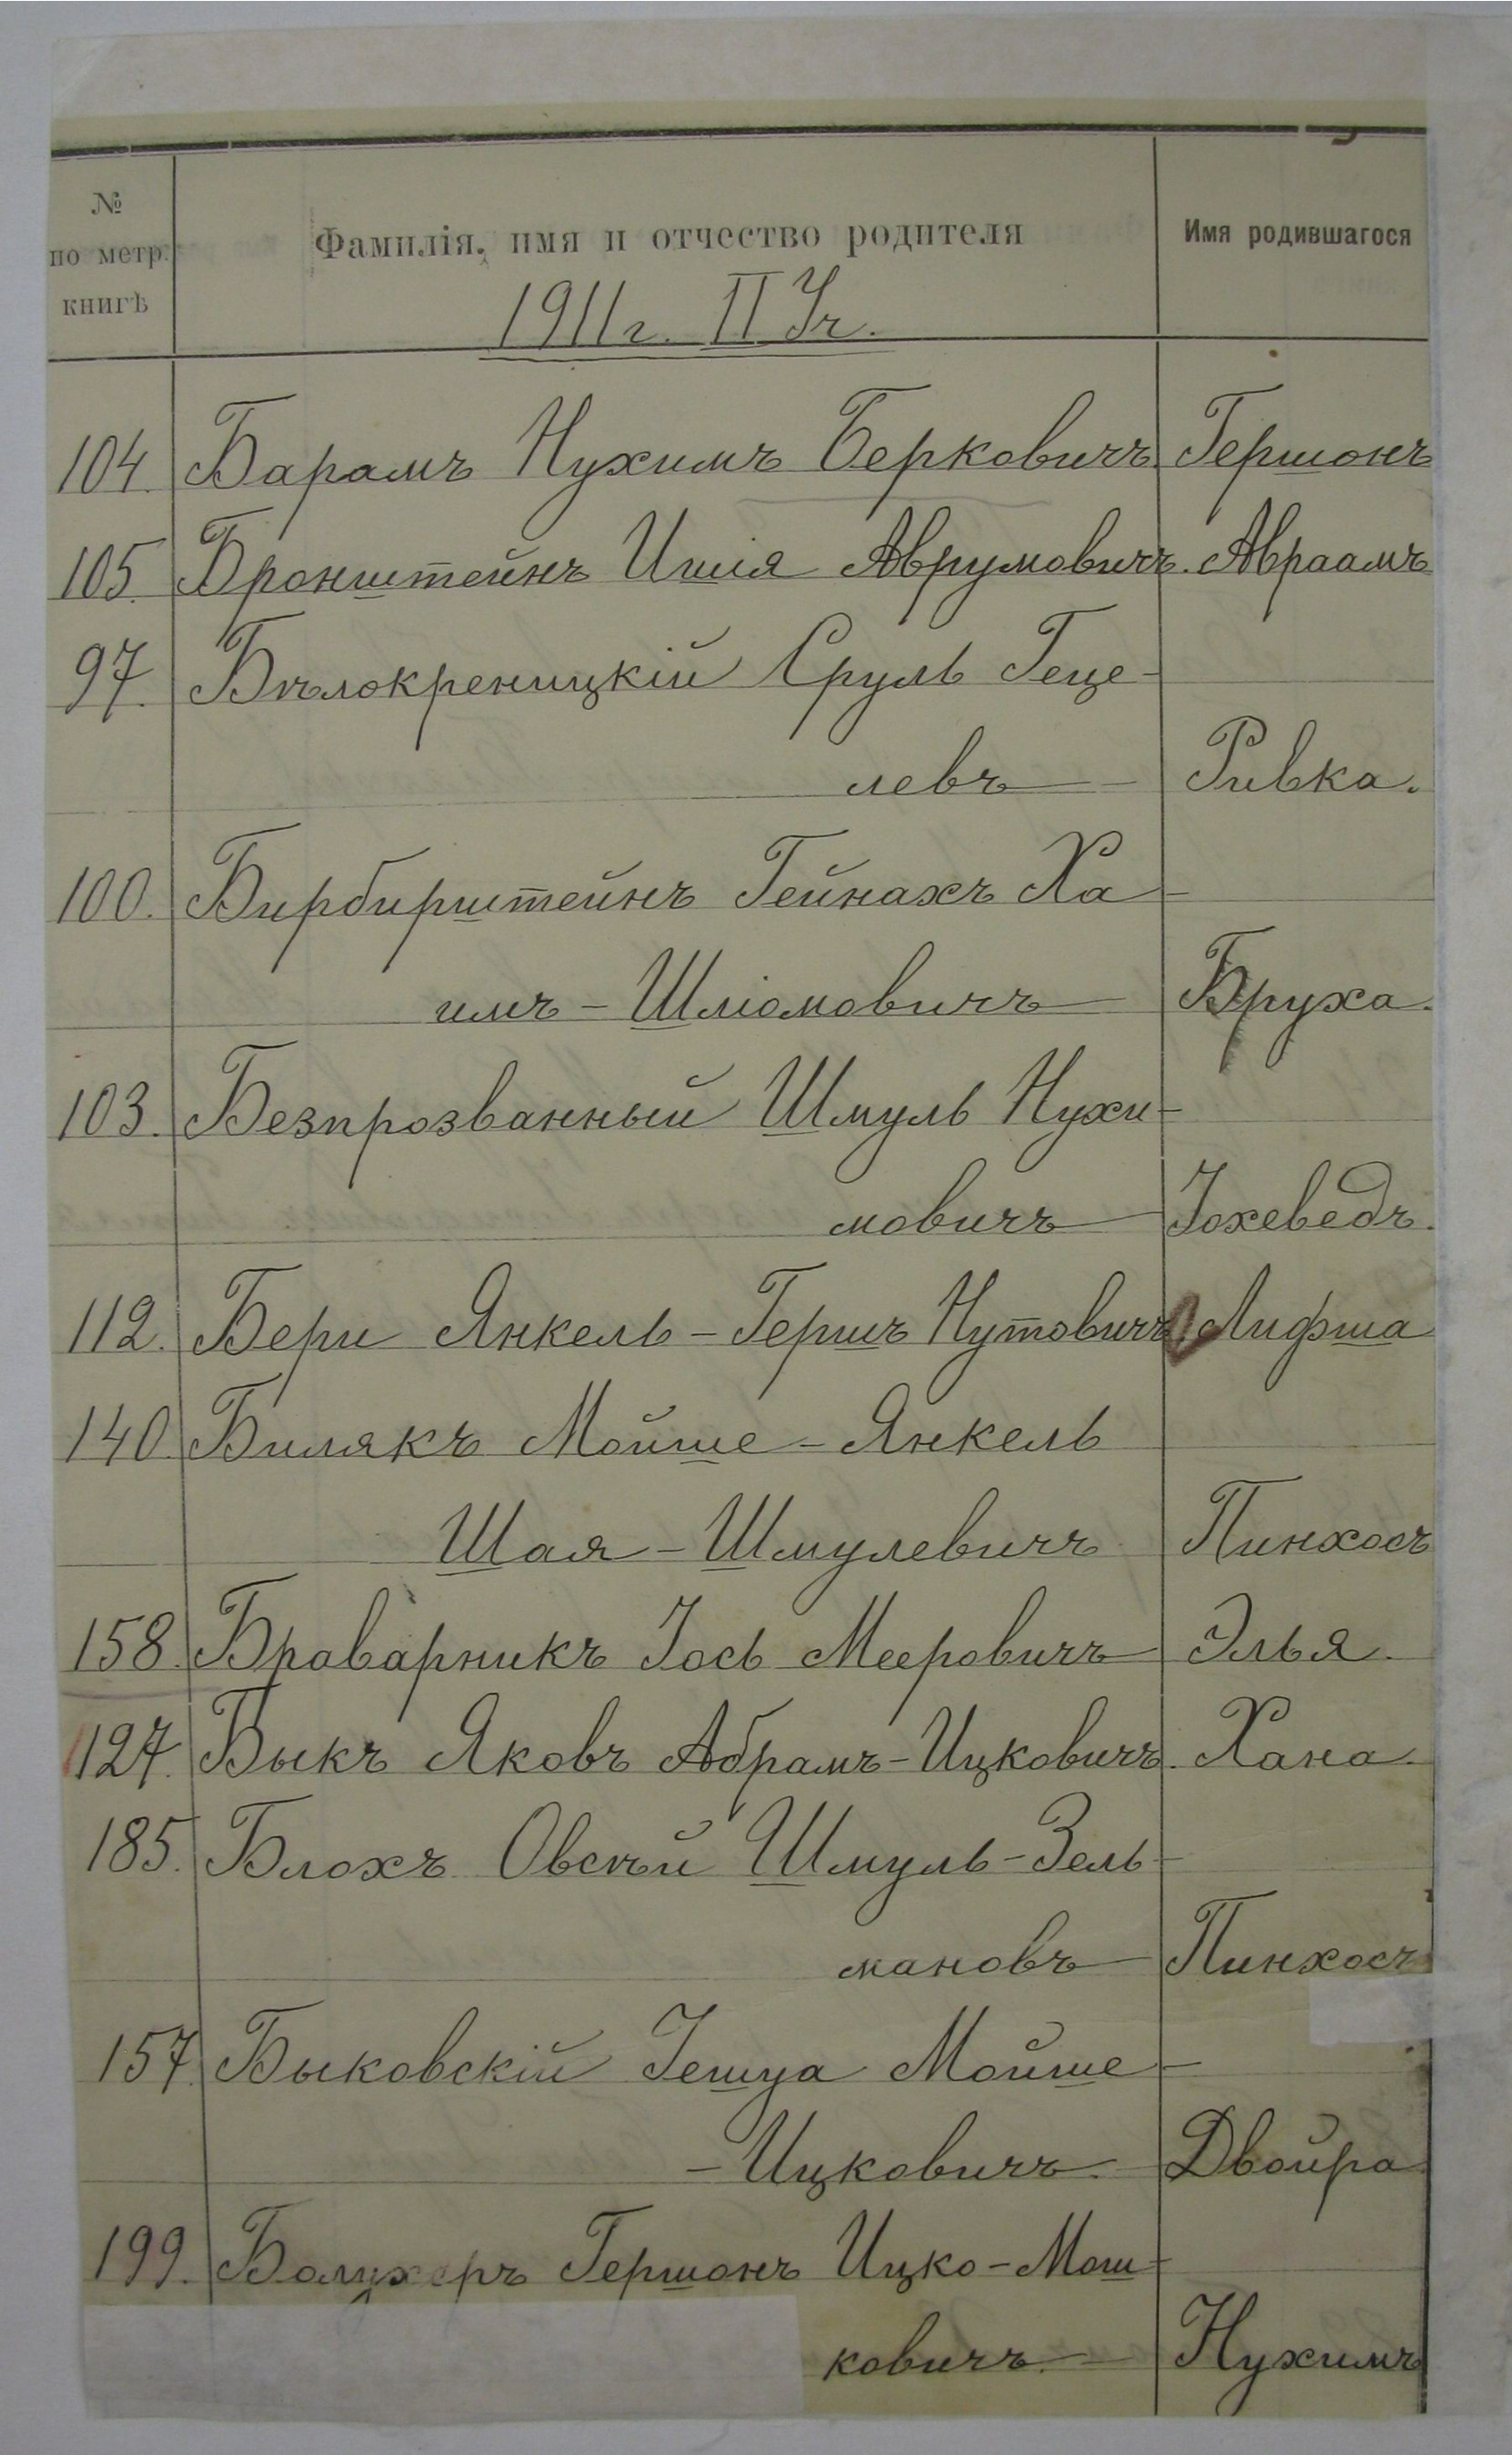 № по метр. книгѣ Фамилія, имя и отчество родителя Имя родившагося
1911 г. II Уч.
104. Барамъ Нухимъ Берковичъ Гершонъ
105. Бронштейнъ Ишія Аврумовичъ. Авраамъ
97. Бѣлокреницкій Сруль Геце-
левъ — Ривка.
100. Бирбирштейнъ Гейнахъ Ха-
имъ - Шліомовичъ — Бруха.
103. Безпрозванный Шмуль Нухи-
мовичъ — Іохеведъ.
112. Бери Янкель - Гершъ Нутовичъ Лифша
140. Билякъ Мойше - Янкель
Шая - Шмулевичъ Пинхосъ
158. Браварникъ Іось Мееровичъ Элья.
127. Быкъ Яковъ Абрамъ-Ицковичъ. Хана.
185. Блохъ Овсѣй Шмуль-Зель-
мановъ — Пинхосъ
157. Быковскій Іешуа Мойше -
- Ицковичъ. Двойра
199. Гершонъ Ицко-Мош-
ковичъ. — Нухимъ